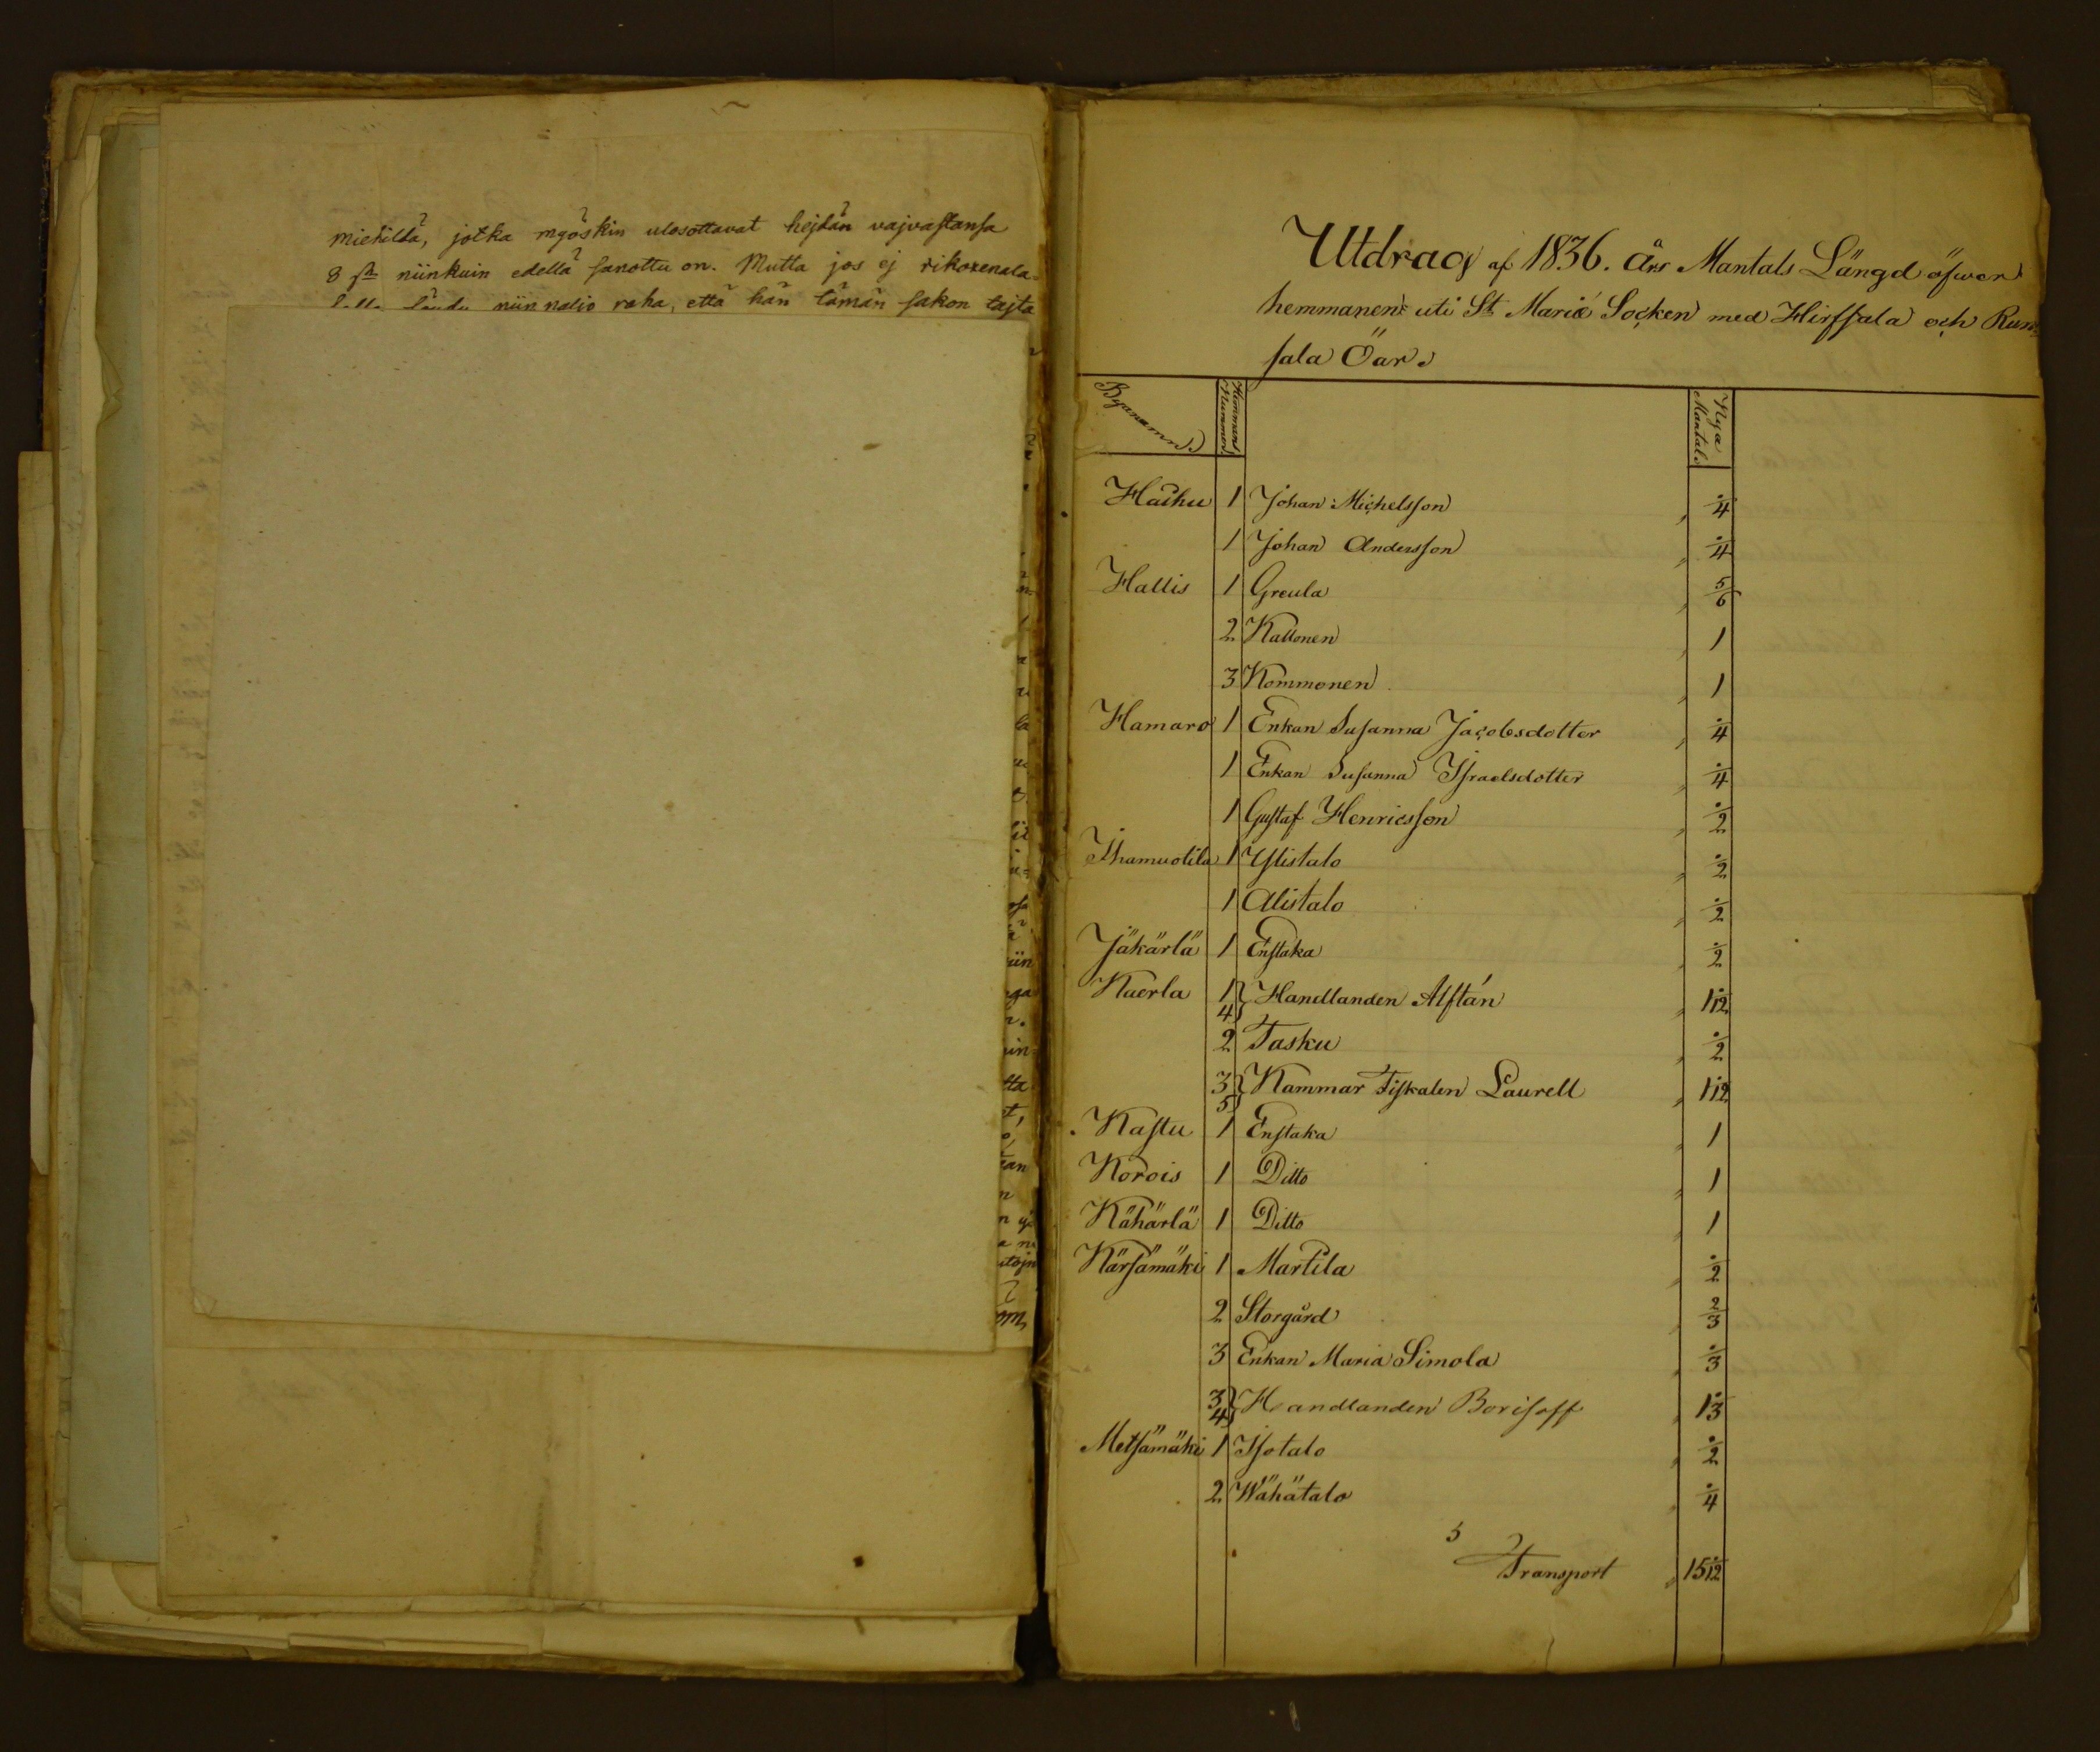 miehildä, jotka myöskin ulosottavat hejdän vajvastansa
niinkuin edellä sanottu on. Mutta jos ej rikoxenala-
raha, että hän tämän sakon tajta
Utdrag af 1836. års Mantals Längd öfwer
hemmanen uti St Mariæ Socken med Hirfsala och Run-
sala Öar.
Byanamn. Hemmans Nummer Nya Mantal.
Haihu 1 Johan Michelsson ·/4
1 Johan Andersson ·/4
Hallis 1 Greula 5/6
2 Kallonen 1
3 Kommonen 1
Hamaro 1 Enkan Susanna Jacobsdotter ·/4
1 Enkan Susanna Israelsdotter ·/4
1 Gustaf Henricsson ·/2
Ihamuotila 1 Ylistalo ·/2
1 Alistalo ·/2
Jäkärlä 1 Enstaka ·/2
Kaerla 1 4 } Handlanden Alftán 1 ·/12
2 Tasku ·/2
3 5 } Kammar Fiskalen Laurell 1 ·/12
Kastu 1 Enstaka 1
Korois 1 Ditto 1
Kähärlä 1 Ditto 1
Kärsämäki 1 Martila ·/2
2 Storgård 2/3
3 Enkan Maria Simola ·/3
3 4 } Handlanden Borisoff 1 ·/3
Metsämäki 1 Isotalo ·/2
2 Wähätalo ·/4
Transport 15 ·/12